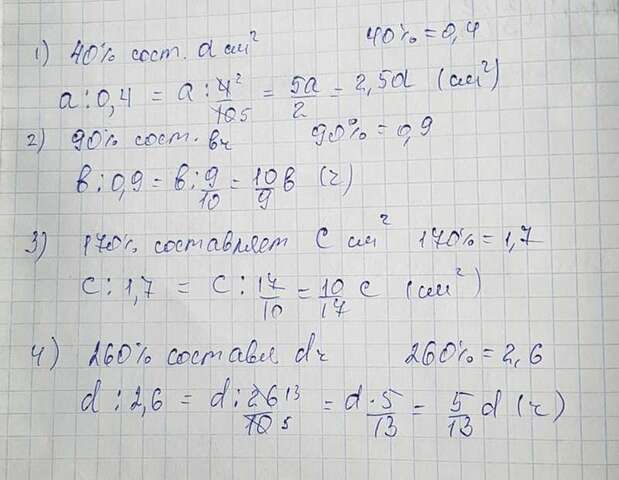 1) 40% сост. a см² 40% = 0,4
a : 0,4 = a : 4²/10 5 = 5a/2 = 2,5a (см²)
2) 90% сост. вч 90% = 0,9
в : 0,9 = в : 9/10 = 10/9 в (ч)
3) 170% составляет с см² 170% = 1,7
с : 1,7 = с : 17/10 = 10/17 с (см²)
4) 260% составл dч 260% = 2,6
d : 2,6 = d : 26 13/10 5 = d · 5/13 = 5/13 d (ч)